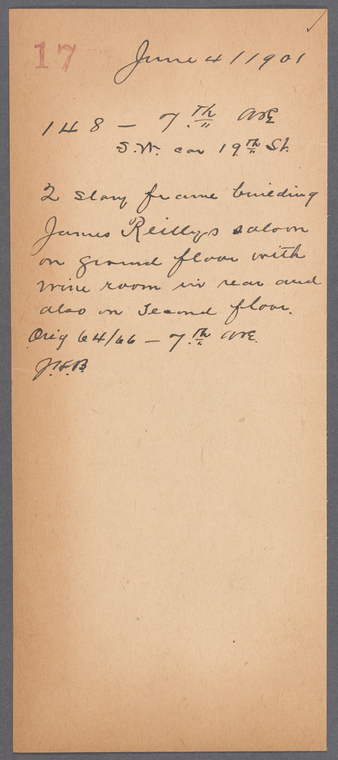 17
June 4/1901
148 - 7th Ave
S.W. cor 19th St.
2 story frame building
James Reilly,s saloon
on ground floor with
wine room in rear and
also on second floor.
Orig 64/66 - 7th Ave.